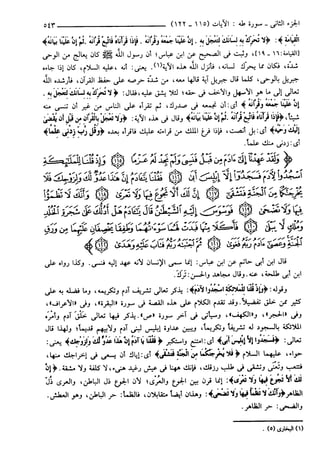 الجزء الثاني - سورة طه: الآيات (١١٥ - ١٢٢)
٥٤٣
﴿لَا تُحَرِّكْ بِهِ لِسَانَكَ لِتَعْجَلَ بِهِ . إِنَّ عَلَيْنَا جَمْعَهُ وَقُرْآنَهُ . فَإِذَا قَرَأْنَاهُ فَاتَّبِعْ قُرْآنَهُ . ثُمَّ إِنَّ عَلَيْنَا بَيَانَهُ﴾
[القيامة: ١٦ - ١٩]، وثبت في الصحيح عن ابن عباس؛ أن رسول الله ﷺ كان يعالج من الوحي
شدة، فكان مما يحرك لسانه، فأنزل الله هذه الآية(١). يعني: أنه، عليه السلام، كان إذا جاءه
جبريل بالوحي، كلما قال جبريل آية قالها معه، من شدة حرصه على حفظ القرآن، فأرشده الله
تعالى إلى ما هو الأسهل والأخف في حقه؛ لئلا يشق عليه، فقال: ﴿لَا تُحَرِّكْ بِهِ لِسَانَكَ لِتَعْجَلَ بِهِ .
إِنَّ عَلَيْنَا جَمْعَهُ وَقُرْآنَهُ﴾ أي: أن نجمعه في صدرك، ثم تقرأه على الناس من غير أن تنسى منه
شيئاً، ﴿فَإِذَا قَرَأْنَاهُ فَاتَّبِعْ قُرْآنَهُ . ثُمَّ إِنَّ عَلَيْنَا بَيَانَهُ﴾ وقال في هذه الآية: ﴿وَلَا تَعْجَلْ بِالْقُرْآنِ مِن قَبْلِ أَن يُقْضَى
إِلَيْكَ وَحْيُهُ﴾ أي: بل أنصت، فإذا فرغ الملك من قراءته عليك فاقرأه بعده ﴿وَقُل رَّبِّ زِدْنِي عِلْماً﴾
أي: زدني منك علماً.
﴿وَلَقَدْ عَهِدْنَا إِلَى آدَمَ مِن قَبْلُ فَنَسِيَ وَلَمْ نَجِدْ لَهُ عَزْماً
وَإِذْ قُلْنَا لِلْمَلَائِكَةِ
اسْجُدُوا لِآدَمَ فَسَجَدُوا إِلَّا إِبْلِيسَ أَبَى
فَقُلْنَا يَا آدَمُ إِنَّ هَذَا عَدُوٌّ لَّكَ وَلِزَوْجِكَ فَلَا
يُخْرِجَنَّكُمَا مِنَ الْجَنَّةِ فَتَشْقَى
إِنَّ لَكَ أَلَّا تَجُوعَ فِيهَا وَلَا تَعْرَى
وَأَنَّكَ لَا تَظْمَأُ
فِيهَا وَلَا تَضْحَى
قال ابن أبي حاتم عن ابن عباس: إنما سمي الإنسان لأنه عهد إليه فنسي. وكذا رواه علي
ابن أبي طلحة، عنه. وقال مجاهد والحسن: تَرَكَ.
وقوله: ﴿وَإِذْ قُلْنَا لِلْمَلَائِكَةِ اسْجُدُوا لِآدَمَ﴾: يذكر تعالى تشريف آدم وتكريمه، وما فضله به على
كثير ممن خلق تفضيلاً. وقد تقدم الكلام على هذه القصة في سورة «البقرة»، وفي «الأعراف»،
وفي «الحجر»، و«الكهف»، وسيأتي في آخر سورة «ص». يذكر فيها تعالى خلق آدم وأمره
الملائكة بالسجود له تشريفاً وتكريماً، ويبين عداوة إبليس لبني آدم ولأبيهم قديماً؛ ولهذا قال
تعالى: ﴿فَسَجَدُوا إِلَّا إِبْلِيسَ أَبَى﴾ أي: امتنع واستكبر ﴿فَقُلْنَا يَا آدَمُ إِنَّ هَذَا عَدُوٌّ لَّكَ وَلِزَوْجِكَ﴾ يعني:
حواء، عليهما السلام ﴿فَلَا يُخْرِجَنَّكُمَا مِنَ الْجَنَّةِ فَتَشْقَى﴾ أي: إياك أن يسعى في إخراجك منها،
فتتعب وتعنى وتشقى في طلب رزقك، فإنك ههنا في عيش رغيد هنيء، لا كلفة ولا مشقة. ﴿إِنَّ
لَكَ أَلَّا تَجُوعَ فِيهَا وَلَا تَعْرَى﴾: إنما قرن بين الجوع والعُرْي؛ لأن الجوع ذل الباطن، والعري ذل
الظاهر. ﴿وَأَنَّكَ لَا تَظْمَأُ فِيهَا وَلَا تَضْحَى﴾: وهذان أيضاً متقابلان، فالظمأ: حر الباطن، وهو العطش.
والضحى: حر الظاهر.
(١) البخاري (٥) .